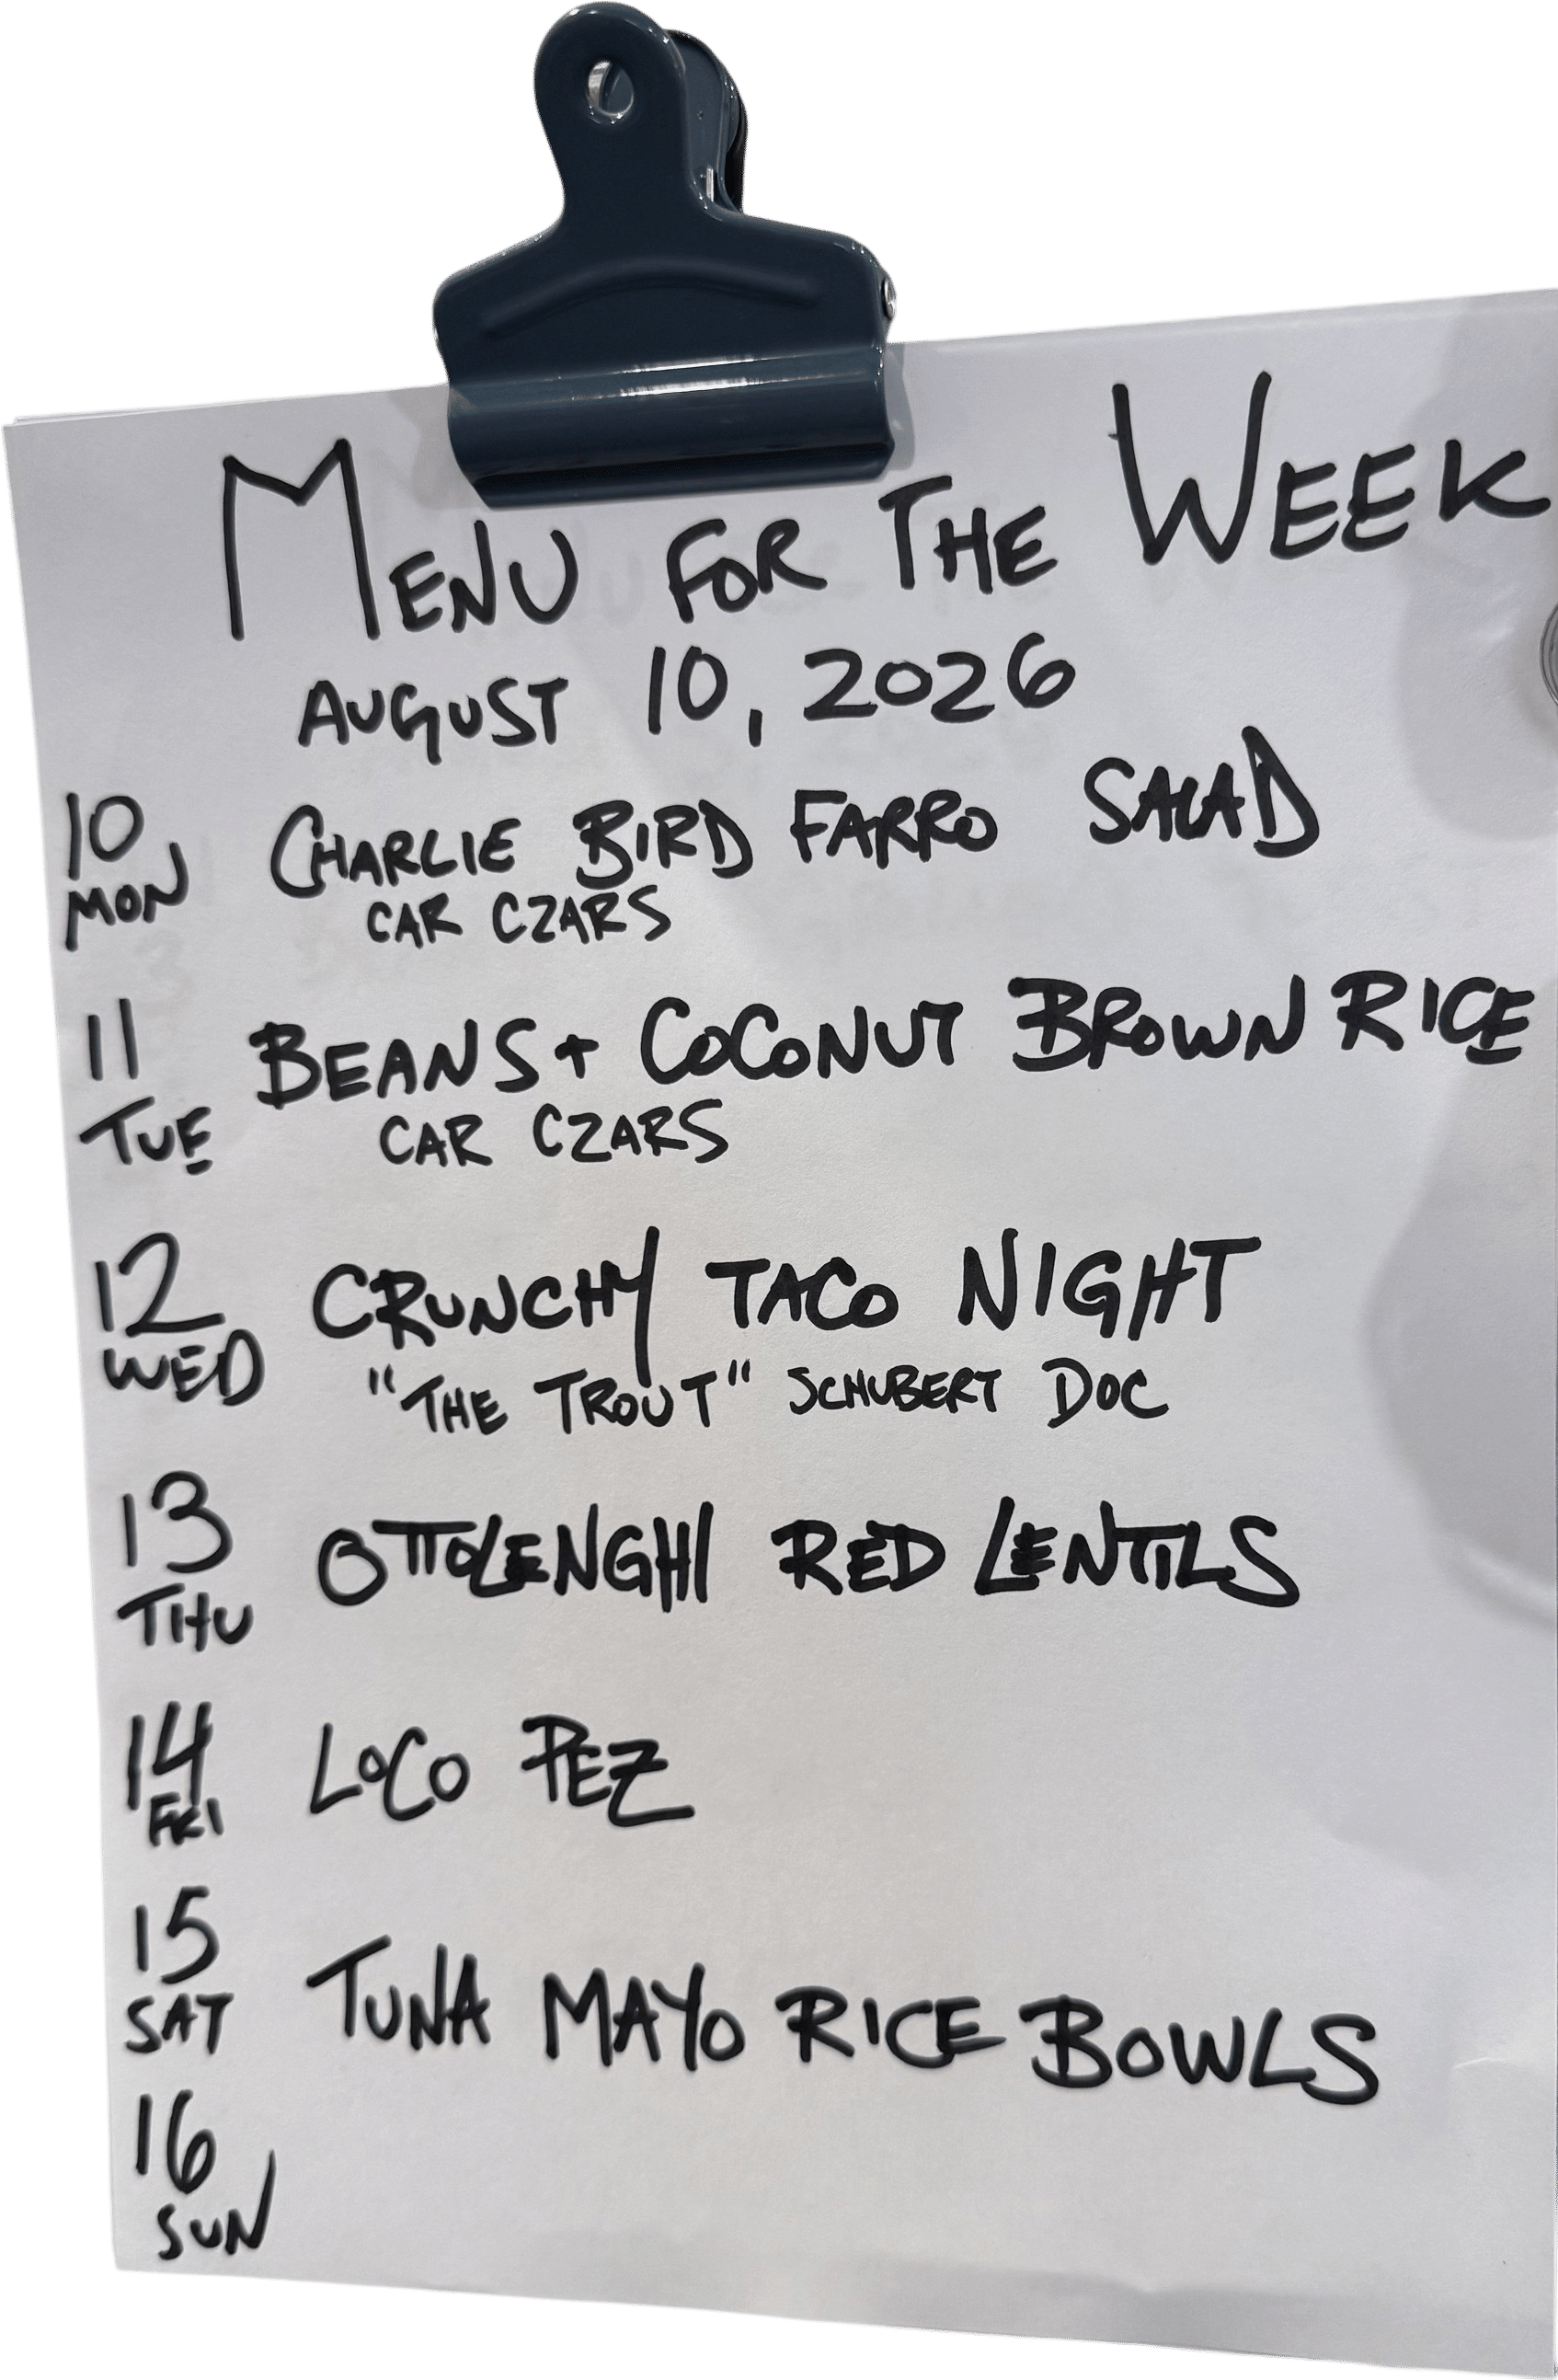 MENU FOR THE WEEK
AUGUST 10, 2026
10 MON CHARLIE BIRD FARRO SALAD
CAR CZARS
11 TUE BEANS + COCONUT BROWN RICE
CAR CZARS
12 WED CRUNCHY TACO NIGHT
"THE TROUT" SCHUBERT DOC
13 THU OTTOLENGHI RED LENTILS
14 FRI LOCO PEZ
15 SAT TUNA MAYO RICE BOWLS
16 SUN